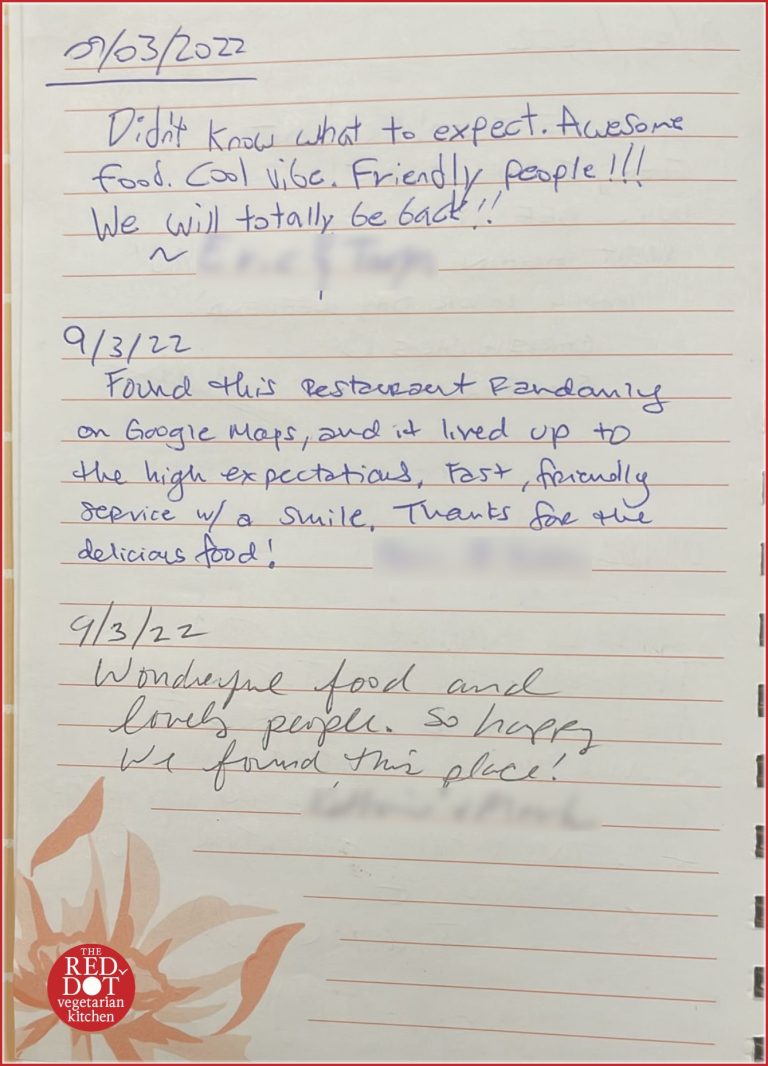 09/03/2022
Didn't know what to expect. Awesome
food. Cool vibe. Friendly people!!!
We will totally be back!!
~
9/3/22
Found this restaurant randomly
on Google Maps, and it lived up to
the high expectations. Fast, friendly
service w/ a smile. Thanks for the
delicious food!
9/3/22
Wonderful food and
lovely people. So happy
We found this place!
THE
RED
DOT
vegetarian
kitchen